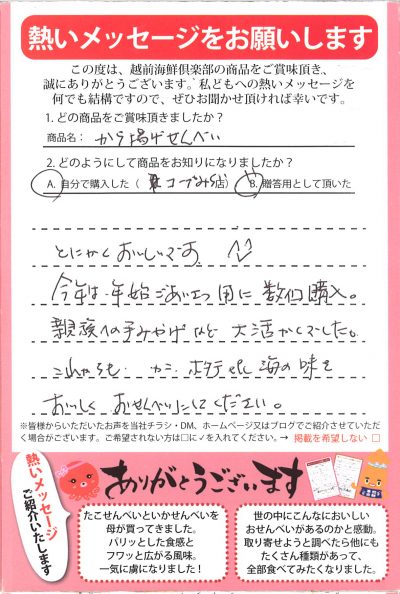 熱いメッセージをお願いします
この度は、越前海鮮倶楽部の商品をご賞味頂き、
誠にありがとうございます。私どもへの熱いメッセージを
何でも結構ですので、ぜひお聞かせ頂ければ幸いです。
1. どの商品をご賞味頂きましたか?
商品名: から揚げせんべい
2. どのようにして商品をお知りになりましたか?
A. 自分で購入した( コープみらい店) B. 贈答用として頂いた
とにかくおいしいです。
今年は年始ごあいさつ用に数個購入。
親族への手みやげなど大活かくでした。
これからも カニ ホタテetc海の味を
おいしくおせんべいにしてください。
※皆様からいただいたお声を当社チラシ・DM、ホームページ又はブログでご紹介させていただ
く場合がございます。ご希望されない方は□に✓を入れてください。→ 掲載を希望しない □
熱いメッセージ
ご紹介いたします
ありがとうございます
たこせんべいといかせんべいを
母が買ってきました。
パリッとした食感と
フワッと広がる風味。
一気に虜になりました!
世の中にこんなにおいしい
おせんべいがあるのかと感動。
取り寄せようと調べたら他にも
たくさん種類があって、
全部食べてみたくなりました。